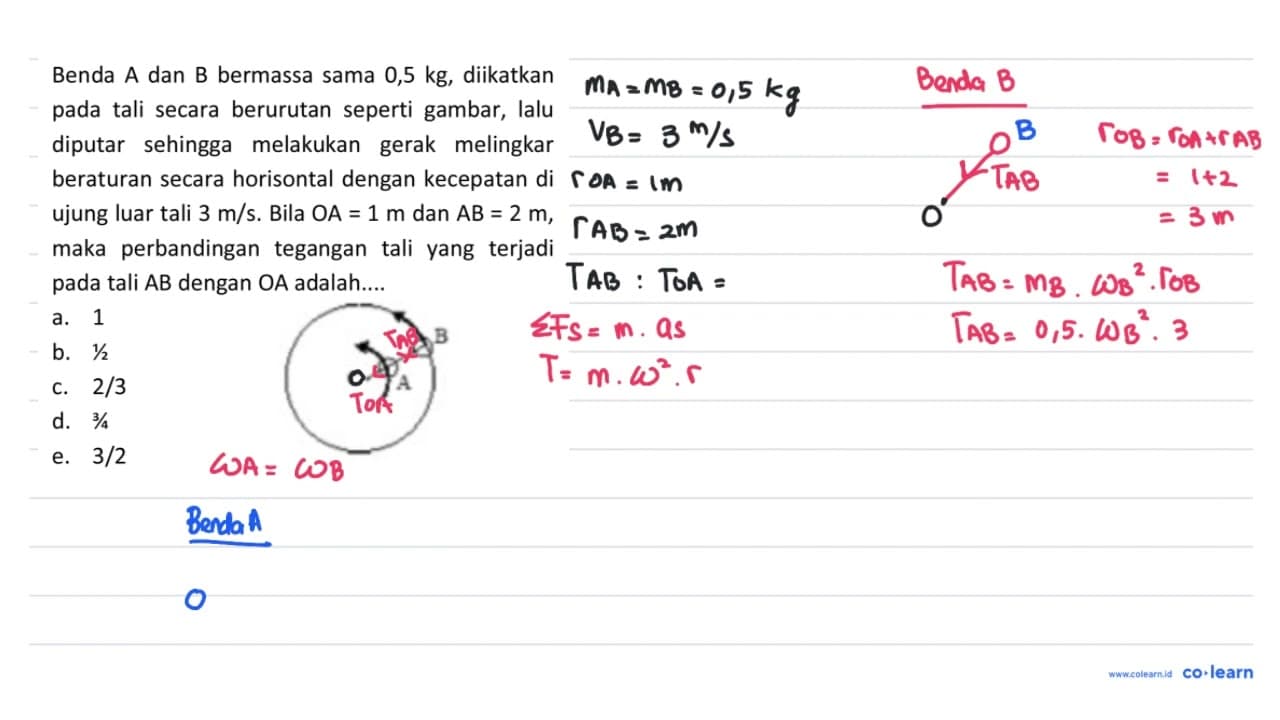 Benda A dan B bermassa sama 0,5 kg, diikatkan
pada tali secara berurutan seperti gambar, lalu
diputar sehingga melakukan gerak melingkar
beraturan secara horisontal dengan kecepatan di
ujung luar tali 3 m/s. Bila OA = 1 m dan AB = 2 m,
maka perbandingan tegangan tali yang terjadi
pada tali AB dengan OA adalah....
a. 1
b. ½
c. 2/3
d. ¾
e. 3/2
TAB
B
O
A
TOA
ωA = ωB
Benda A
O
mA = mB = 0,5 kg
VB = 3 m/s
rOA = 1m
rAB = 2m
TAB : TOA =
ΣFs = m . as
T = m . ω² . r
Benda B
B
TAB
O
rOB = rOA + rAB
= 1+2
= 3 m
TAB = mB . ωB² . rOB
TAB = 0,5 . ωB² . 3
www.colearn.id co·learn